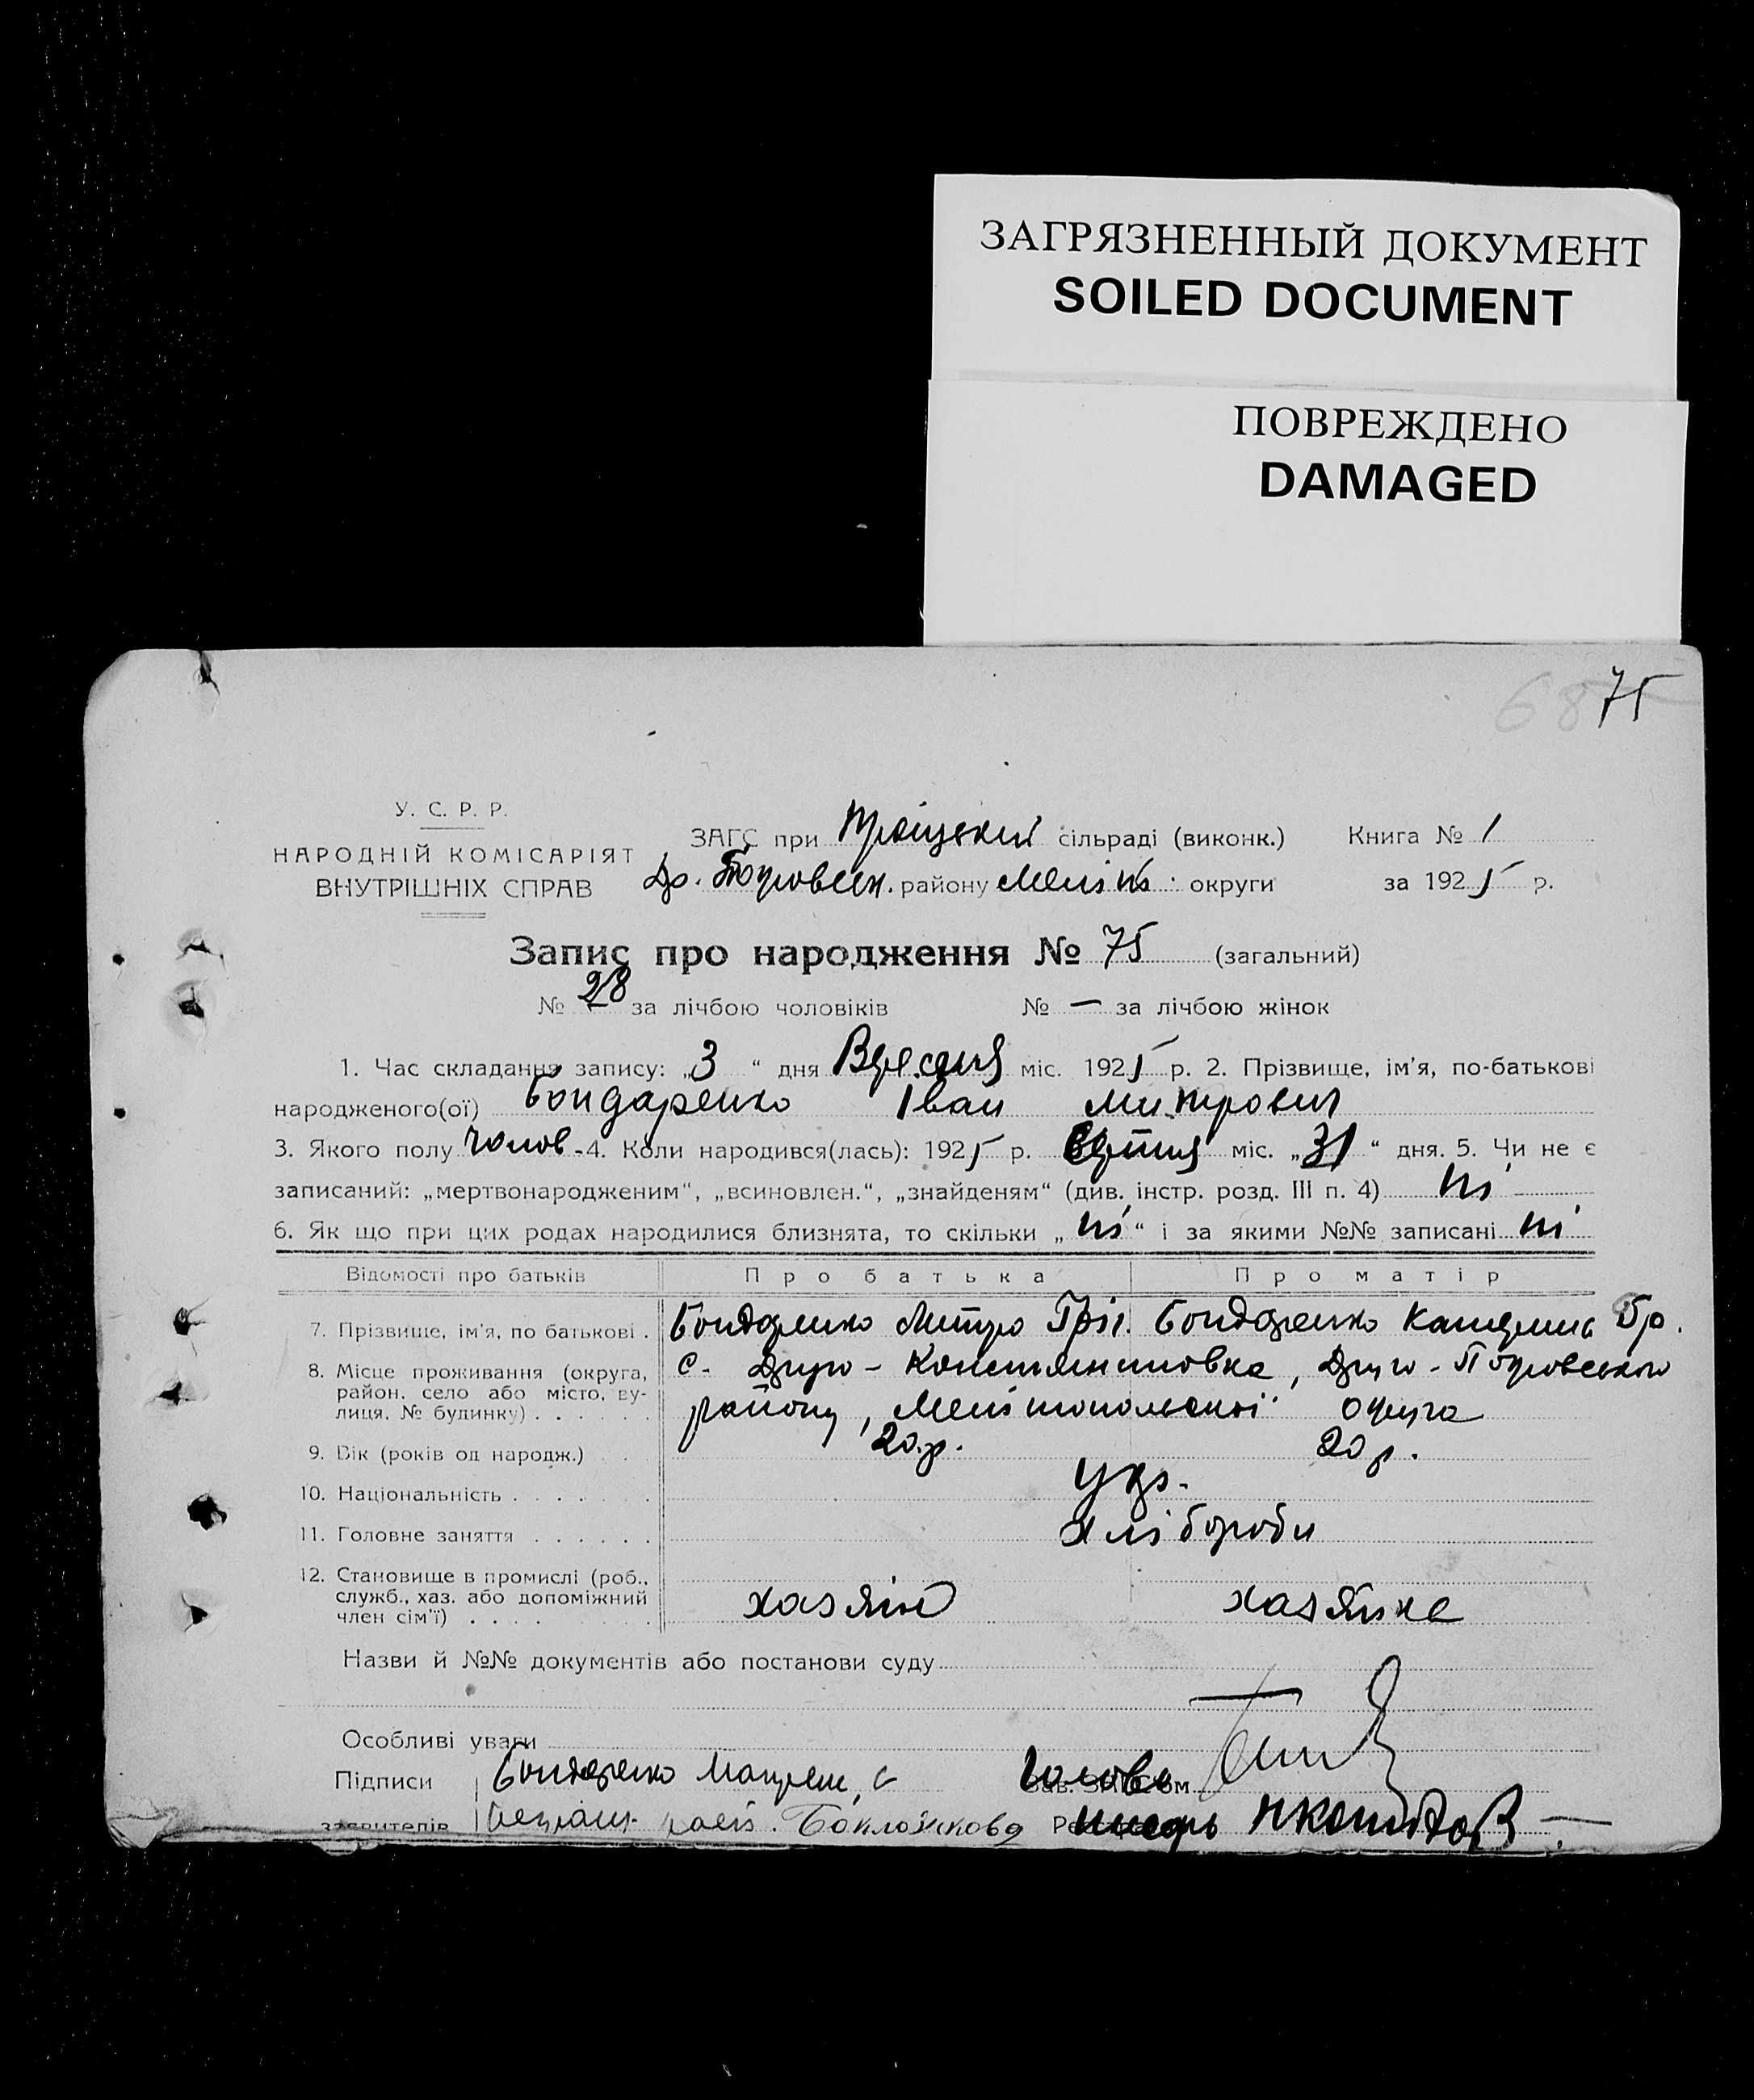 ЗАГРЯЗНЕННЫЙ ДОКУМЕНТ
SOILED DOCUMENT
ПОВРЕЖДЕНО
DAMAGED
68 75
У. С. Р. Р.
НАРОДНІЙ КОМІСАРІЯТ
ВНУТРІШНІХ СПРАВ
ЗАГС при Троіцькій сільраді (виконк.) Книга № 1
району Меліт. округи за 1925 р.
Запис про народження № 75 (загальний)
№ 28 за лічбою чоловіків № — за лічбою жінок
1. Час складання запису: „3“ дня Вересня міс. 1925 р. 2. Прізвище, ім'я, по-батькові
народженого(ої) Бондаренко Іван Митрович
3. Якого полу чолов. 4. Коли народився(лась): 1925 р. міс. „31“ дня. 5. Чи не є
записаний: „мертвонародженим“, „всиновлен.“, „знайденям“ (див. інстр. розд. III п. 4) ні
6. Як що при цих родах народилися близнята, то скільки „ні“ і за якими №№ записані ні
Відомості про батьків Про батька Про матір
7. Прізвище, ім'я, по батькові . Бондаренко Митро Гріг. Бондаренко Катерина
8. Місце проживання (округа, район, село або місто, вулиця, № будинку) . . . . . . с. Друго-Константиновка, Друго-Покровського
району, Мелітопольської округа
9. Вік (років од народж.) . . 20 р. 20 р.
10. Національність . . . . . . . Укр.
11. Головне заняття . . . . . . Хлібороби
12. Становище в промислі (роб., служб., хаз. або допоміжний член сім'ї) . . . . хазяїн хазяйка
Назви й №№ документів або постанови суду
Особливі уваги
Підписи Бондаренко Голова Зав. ЗАГС'ом
заявителів